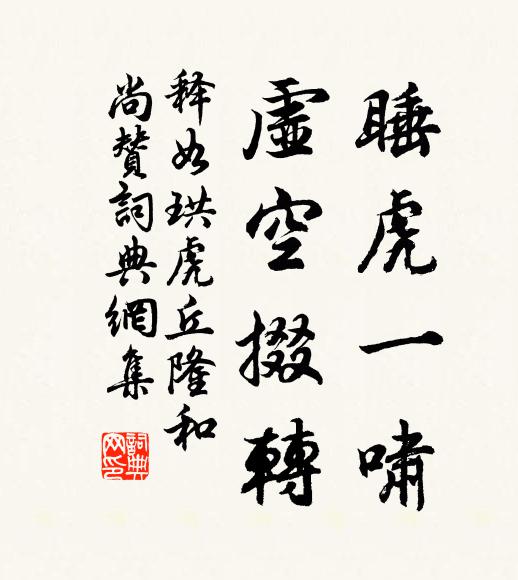 睡虎一嘯
虛空掇轉
释如珙虎丘隆和
尚贊詞典網集
詞典网印